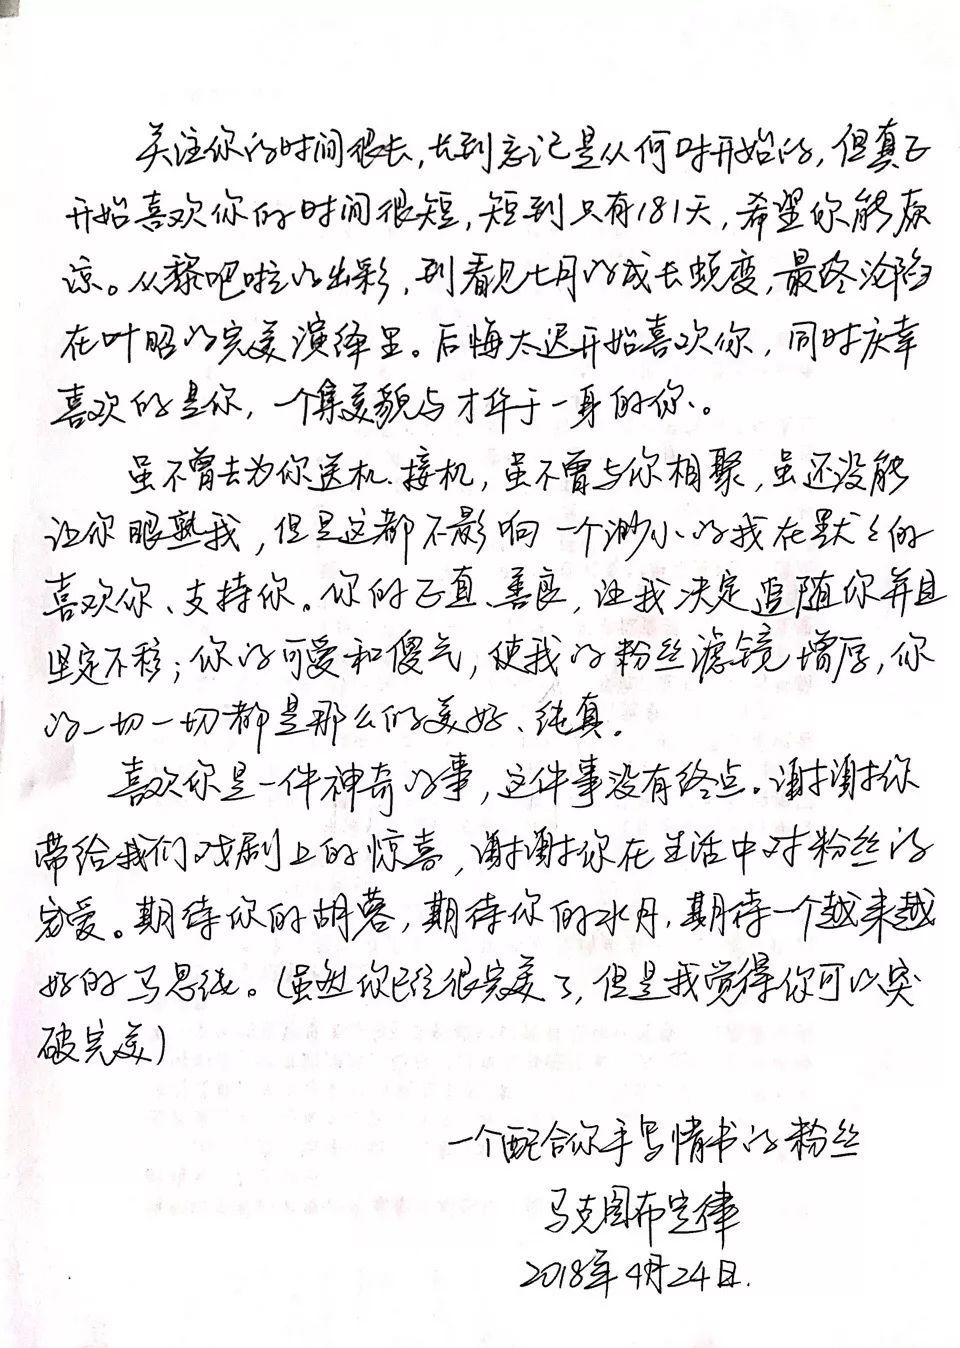 关注你的时间很长，长到忘记是从何时开始的，但真正
开始喜欢你的时间很短，短到只有181天，希望你能原
谅。从黎吧啦的出彩，到看见七月的成长蜕变，最终沦陷
在叶昭的完美演绎里。后悔太迟开始喜欢你，同时庆幸
喜欢的是你，一个集美貌与才华于一身的你。
虽不曾去为你送机、接机，虽不曾与你相聚，虽还没能
让你眼熟我，但是这都不影响一个渺小的我在默々的
喜欢你、支持你。你的正直、善良，让我决定追随你并且
坚定不移；你的可爱和傻气，使我的粉丝滤镜增厚，你
的一切一切都是那么的美好、纯真。
喜欢你是一件神奇的事，这件事没有终点。谢谢你
带给我们戏剧上的惊喜，谢谢你在生活中对粉丝的
宠爱。期待你的胡蓉，期待你的水月，期待一个越来越
好的马思纯。（虽然你已经很完美了，但是我觉得你可以突
破完美）
一个配合你手写情书的粉丝
马克图布定律
2018年4月24日.